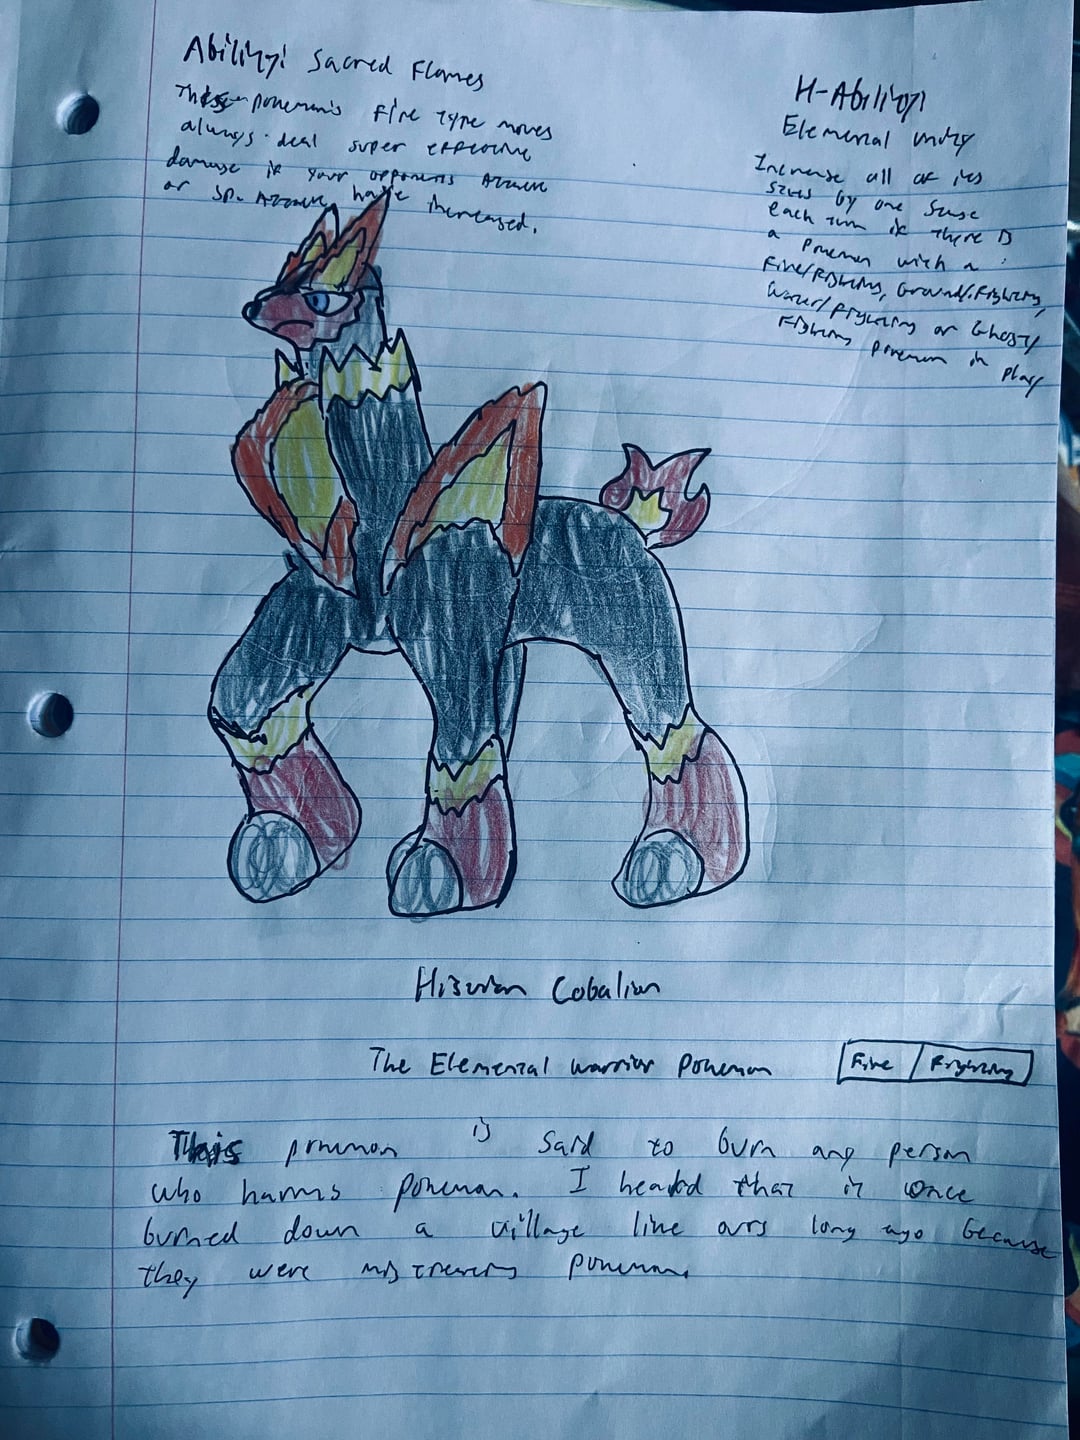 Ability: Sacred Flames
This pokemon's Fire type moves
always deal super effective
damage if your opponents Attack
or Sp. Attack have increased.
H-Ability:
Elemental Unity
Increase all of its
stats by one stage
each turn if there is
a Pokemon with a
Fire/Fighting, Ground/Fighting,
Water/Fighting or Ghost/
Fighting pokemon in play
Hisuian Cobalion
The Elemental Warrior Pokemon
Fire / Fighting
This pokemon is said to burn any person
who harms pokemon. I heard that it once
burned down a village like ours long ago because
they were mistreating pokemon.